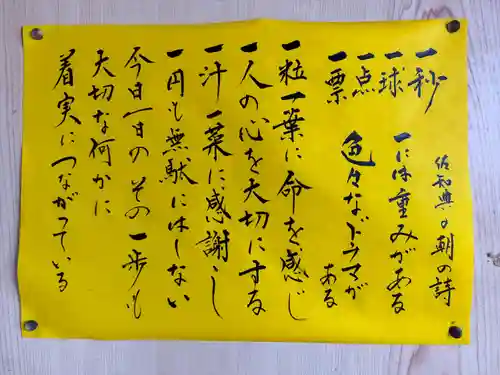 一秒
一球
一点
一票
佐和典の朝の詩
一には重みがある
色々なドラマが
ある
一粒一葉に命を感じ
一人の心を大切にする
一汁一菜に感謝し
一円も無駄にはしない
今日一日の その一歩も
大切な何かに
着実につながっている